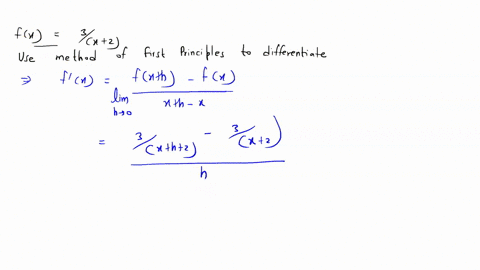 f(x) = 3/(x+2)
Use method of first Principles to differentiate
⇒ f'(x) = lim h→0 f(x+h) - f(x) / x+h-x
= 3/(x+h+2) - 3/(x+2) / h